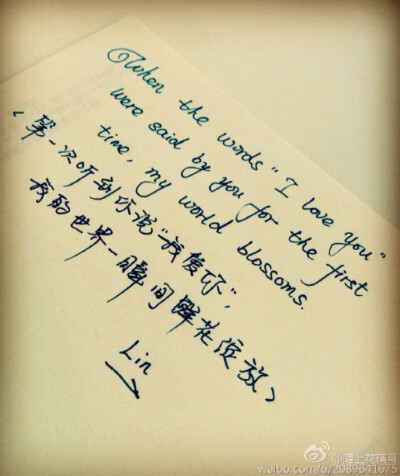 When the words "I love you"
were said by you for the first
time, my world blossoms.
(第一次听到你说"我爱你",
我的世界一瞬间鲜花绽放)
Lin
@陌上花隔月
weibo.com/u/2089641675